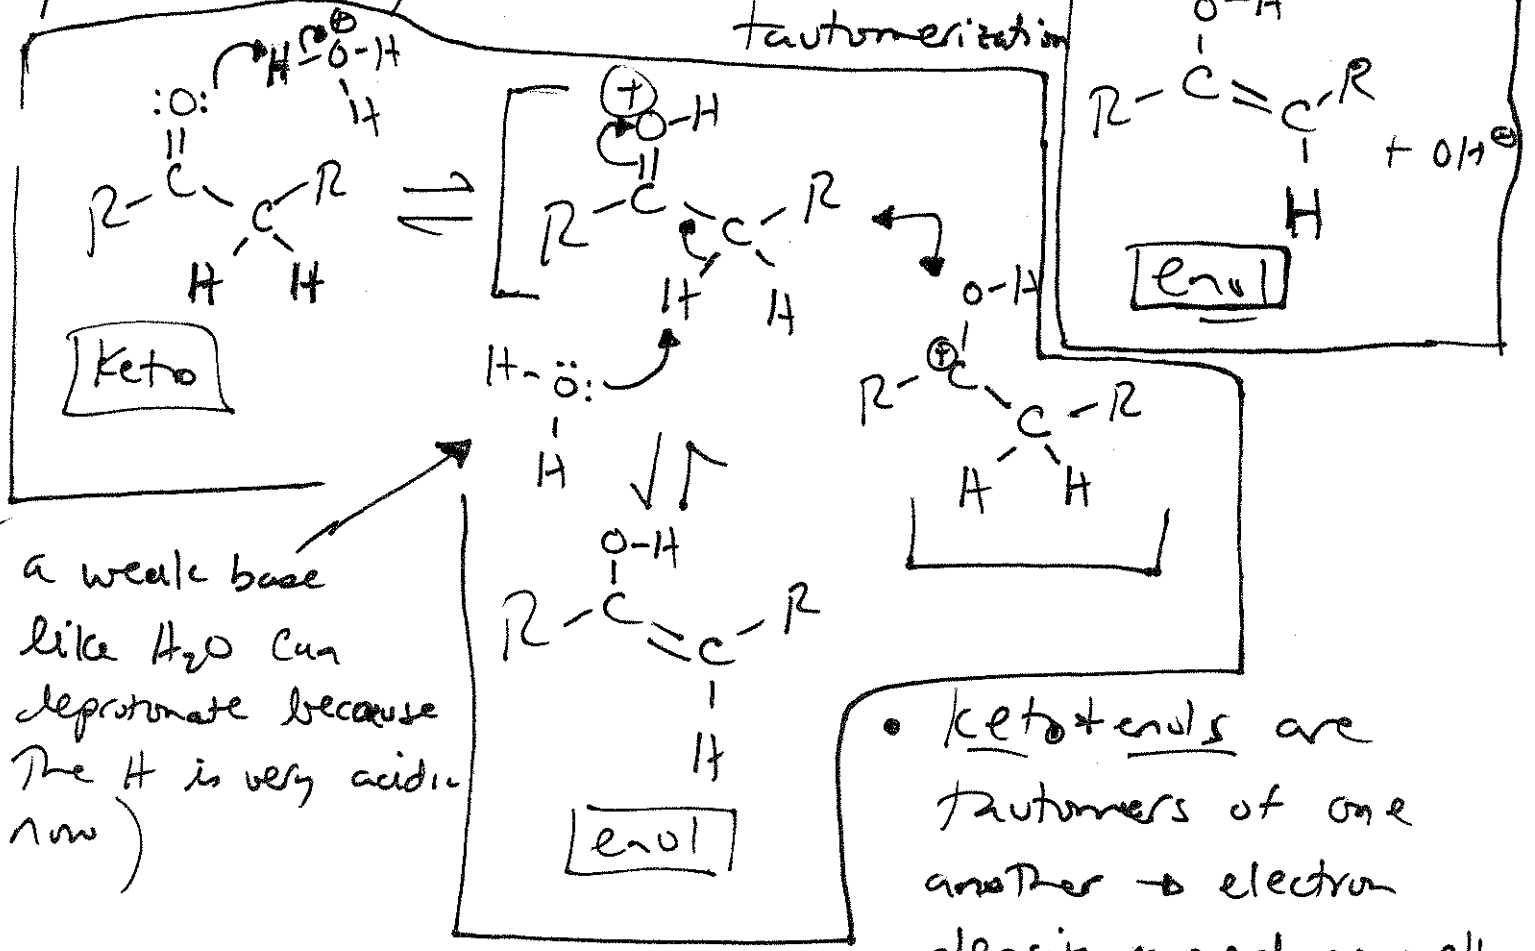 tautomerization
O-H
R-C=C-R
H
+ OH⊖
enol
:O: H-O⊕-H
H
R C C R
H H
keto
⊕
O-H
R C C R
H H
H-O:
H
O-H
⊕
R C C R
H H
O-H
R C=C R
H
enol
a weak base
like H₂O can
deprotonate because
the H is very acidic
now)
• keto + enols are
tautomers of one
another → electron